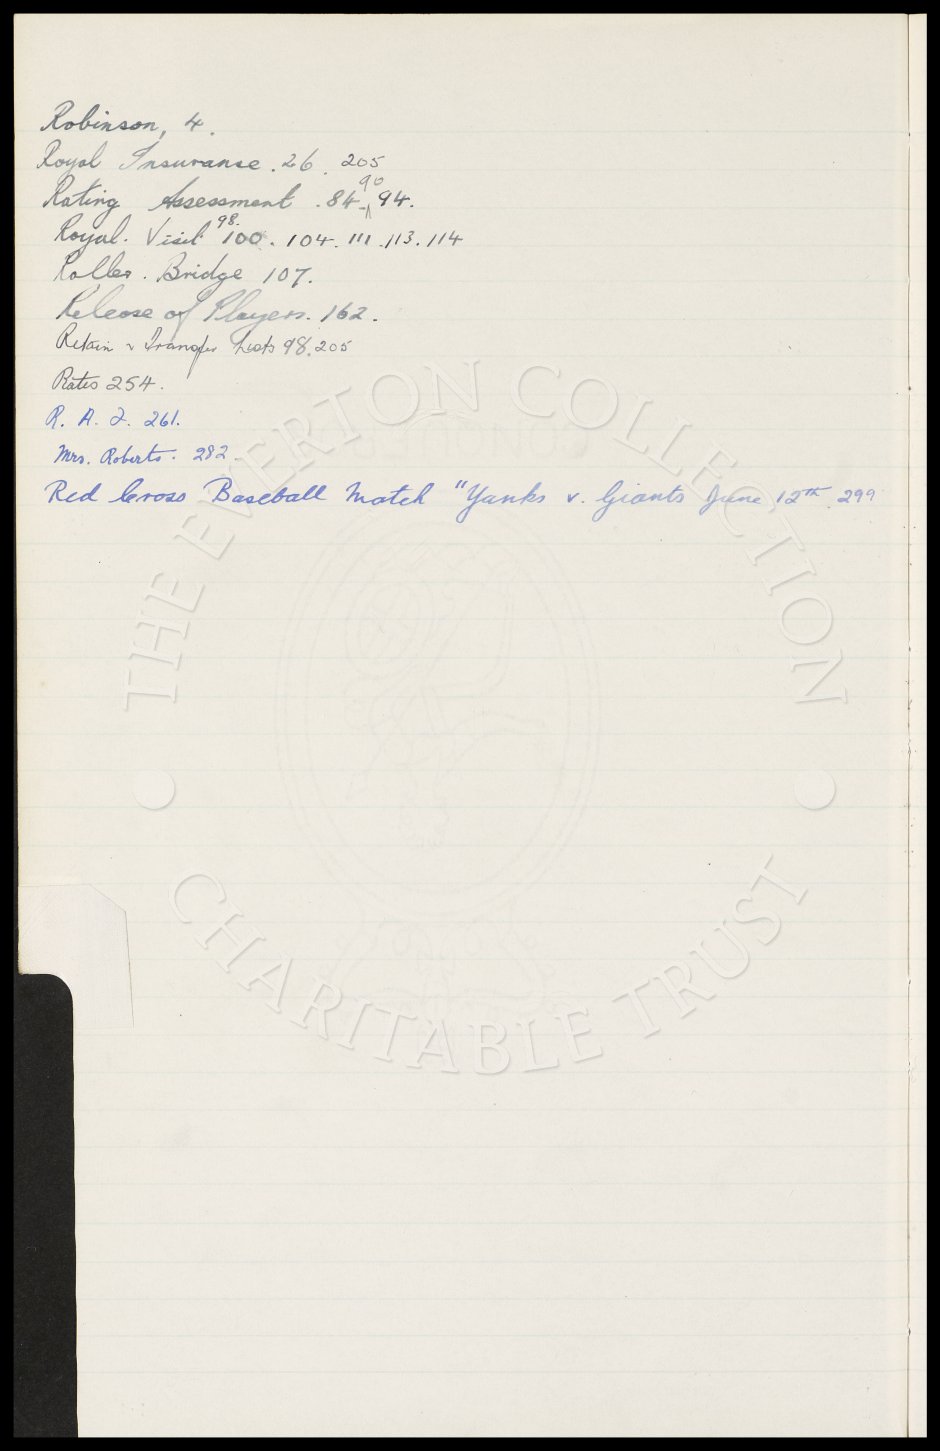 Robinson, 4.
Royal Insurance. 26. 205
Rating Assessment. 84-90 94.
Royal. Visit 98. 100. 104. 111. 113. 114
Roller. Bridge 107.
Release of Players. 162.
Retain & Transfer Lists 98. 205
Rates 254.
R. A. F. 261.
Mrs. Roberts. 282.
Red Cross Baseball Match "Yanks v. Giants June 12th. 299
THE EVERTON COLLECTION
CHARITABLE TRUST